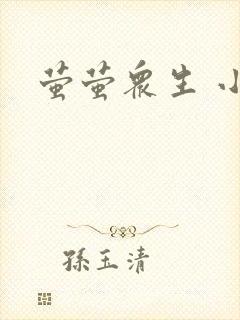 萤萤众生 小
孫玉清